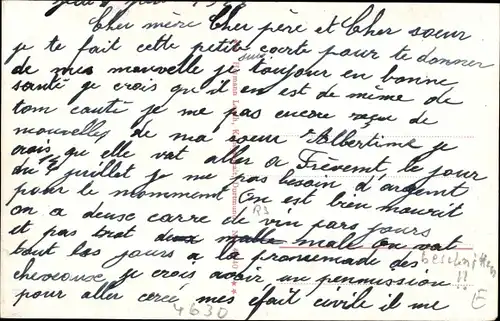 Cher mère Cher père et Cher soeur
je te fait cette petite carte pour te donner
de mes nouvelle je suis toujour en bonne
santé je crois qu'il en est de même de
tom couté je me pas encore reçue de
nouvelles de ma soeur Albertine je
crois qu'elle vat aller a Frévent le jour
du 14 juillet je me pas besoin d'argent
pour le nomment On est bien nourit
on a deuse carre de vin pars jours
et pas trot male On vat
tout les jours a la promemade des
cheveause je crois avoir un penmission
pour aller cercé mes éfait civile il me
beschnitten
!!
R3
4630
E